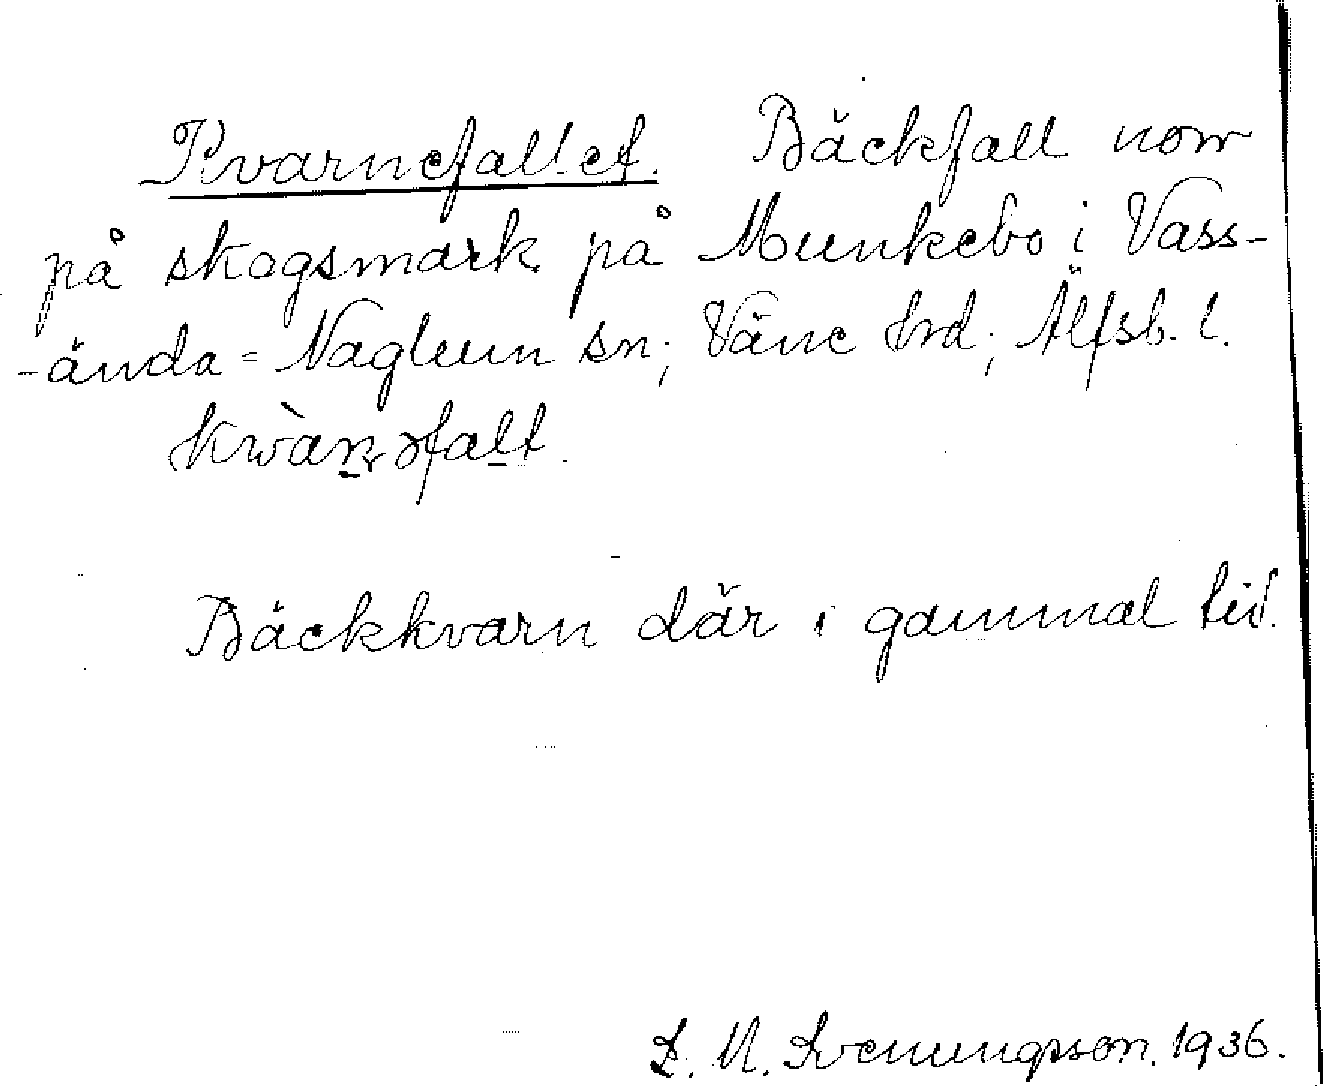 Kvarnefallet. Bäckfall norr
på skogsmark på Munkebo i Vass-
-ända=Naglum sn; Väne hrd; Älfsb. l.
kwàrnəfalt.
Bäckkvarn där i gammal tid.
S. M. Svenungsson. 1936.